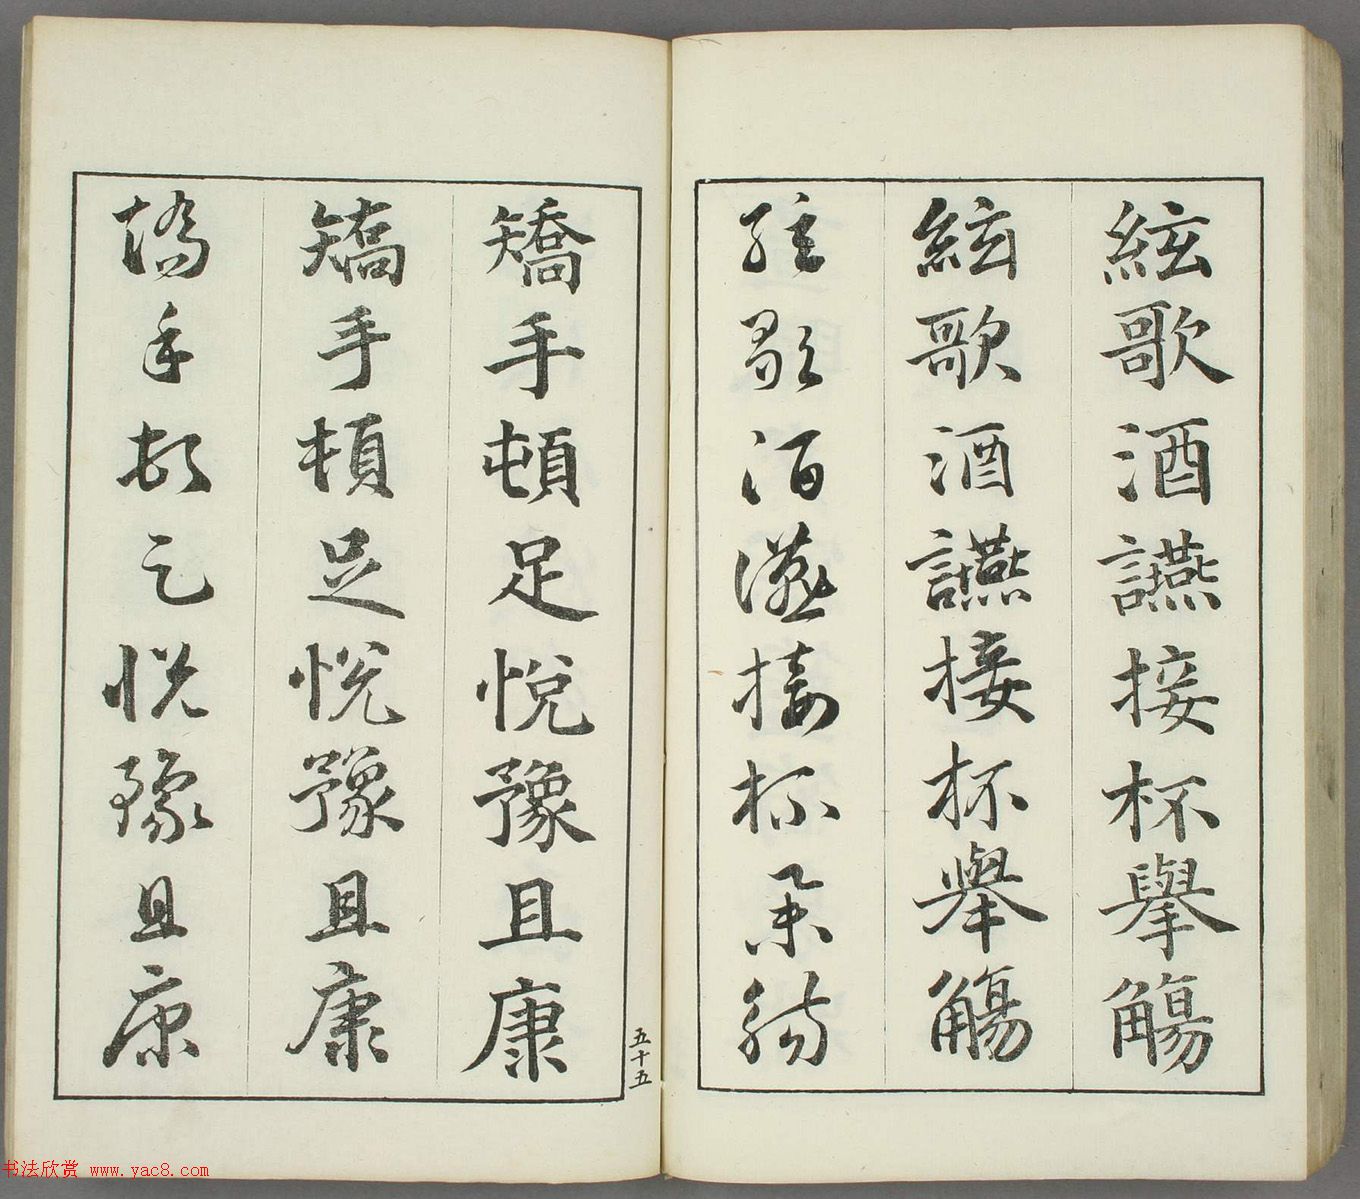 絃歌酒讌接杯舉觴
絃歌酒讌接杯舉觴
絃歌酒讌接杯舉觴
矯手頓足悅豫且康
矯手頓足悅豫且康
矯手頓足悅豫且康
五十五
书法欣赏 www.yac8.com